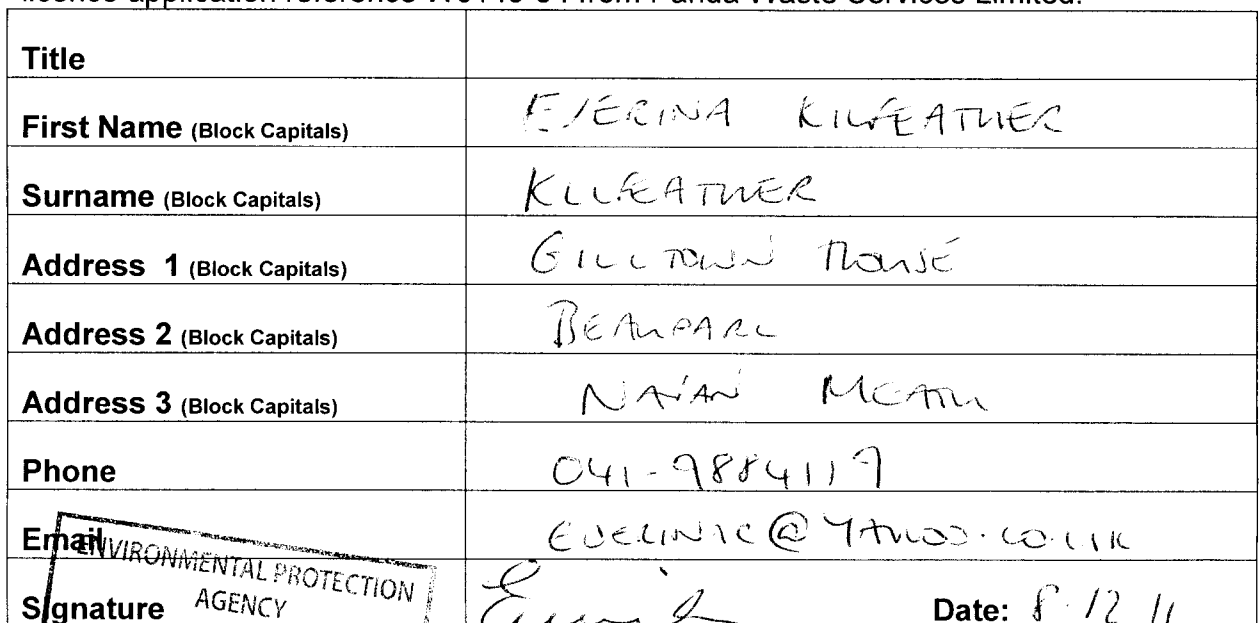 licence application reference W0140-04 from Panda Waste Services Limited.
Title
First Name (Block Capitals) EVERINA KILFEATHER
Surname (Block Capitals) KILFEATHER
Address 1 (Block Capitals) GILLTOWN HOUSE
Address 2 (Block Capitals) BEAUPARC
Address 3 (Block Capitals) NAVAN MEATH
Phone 041-9884119
Email
ENVIRONMENTAL PROTECTION
AGENCY
Signature Date: 8.12 11